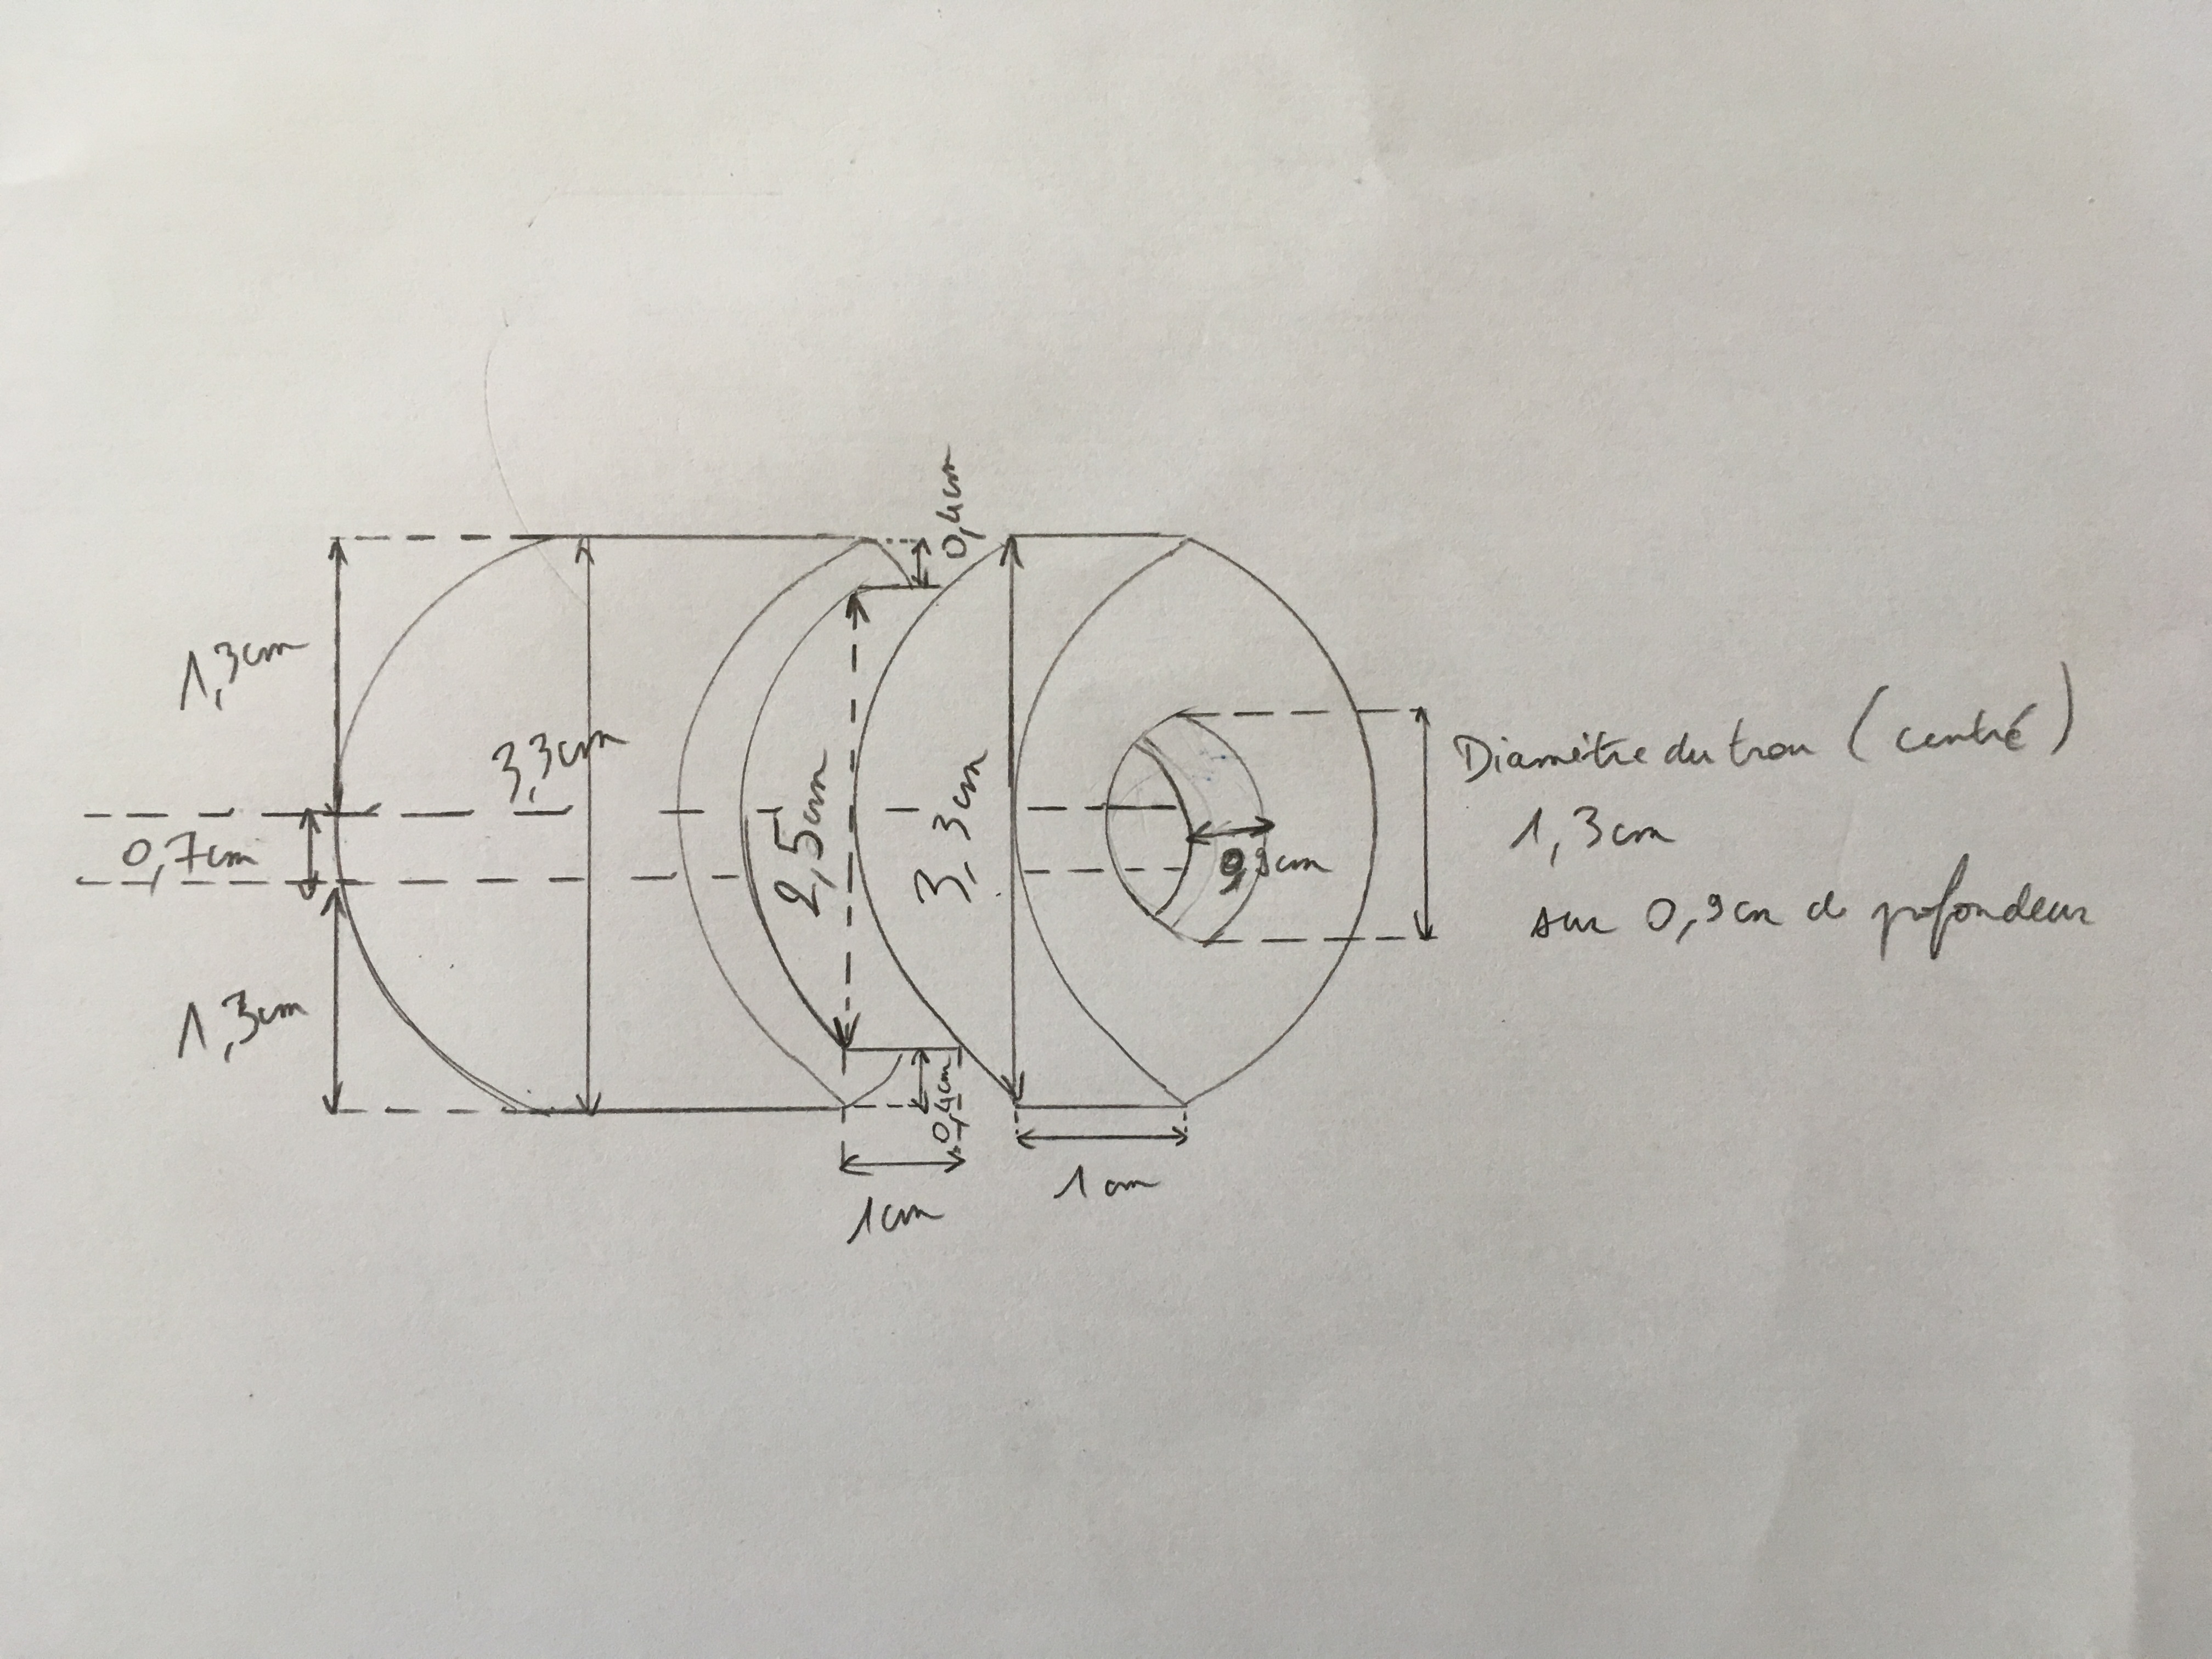 0,4cm
1,3cm
3,3cm
0,7cm
2,5cm
3,3cm
0,9cm
Diamètre du trou (centré)
1,3cm
sur 0,9cm de profondeur
1,3cm
0,4cm
1cm
1cm